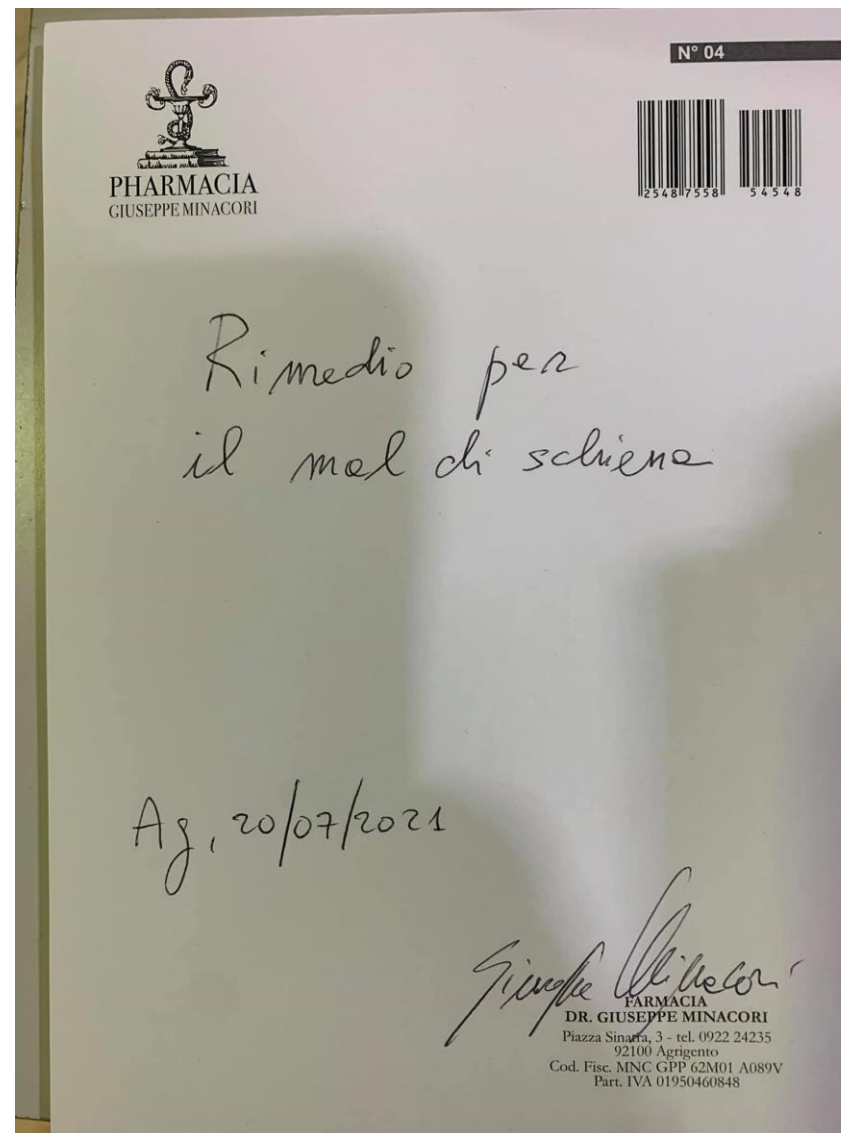 N° 04
2548 7558 54548
PHARMACIA
GIUSEPPE MINACORI
Rimedio per
il mal di schiena
Ag, 20/07/2021
Giuseppe Minacori
FARMACIA
DR. GIUSEPPE MINACORI
Piazza Sinatra, 3 - tel. 0922 24235
92100 Agrigento
Cod. Fisc. MNC GPP 62M01 A089V
Part. IVA 01950460848